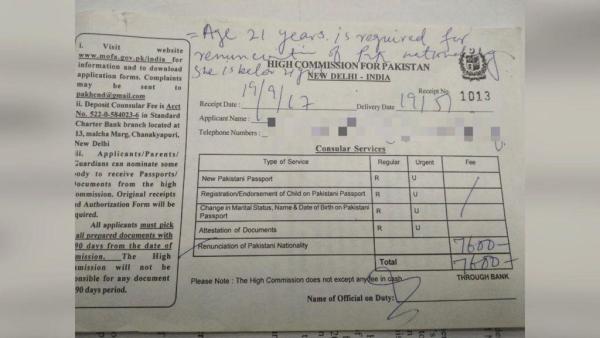 = Age 21 years. is required for
renunciation of Pak nationality
She is below age
HIGH COMMISSION FOR PAKISTAN
NEW DELHI - INDIA
Receipt No. 1013
Receipt Date : 19/9/17 Delivery Date 19/
Applicant Name :
Telephone Numbers :
Consular Services
Type of Service Regular Urgent Fee
New Pakistani Passport R U
Registration/Endorsement of Child on Pakistani Passport R U
Change in Marital Status, Name & Date of Birth on Pakistani
Passport R U
Attestation of Documents R U
Renunciation of Pakistani Nationality 7600-
Total 7600-
Please Note : The High Commission does not except any fee in cash. THROUGH BANK
Name of Official on Duty:
i. Visit website
www.mofa.gov.pk/india for
information and to download
application forms. Complaints
may be sent to
pakhcnd@gmail.com
ii. Deposit Counsular Fee is Acct
No. 522-0-584023-6 in Standard
Charter Bank branch located at
13, malcha Marg, Chanakyapuri,
New Delhi
iii. Applicants/Parents/
Guardians can nominate some
body to receive Passports/
Documents from the high
ommission. Original receipts
d Authorization Form will be
quired.
All applicants must pick
all prepared documents with
90 days from the date of
mission. The High
mission will not be
onsible for any document
90 days period.